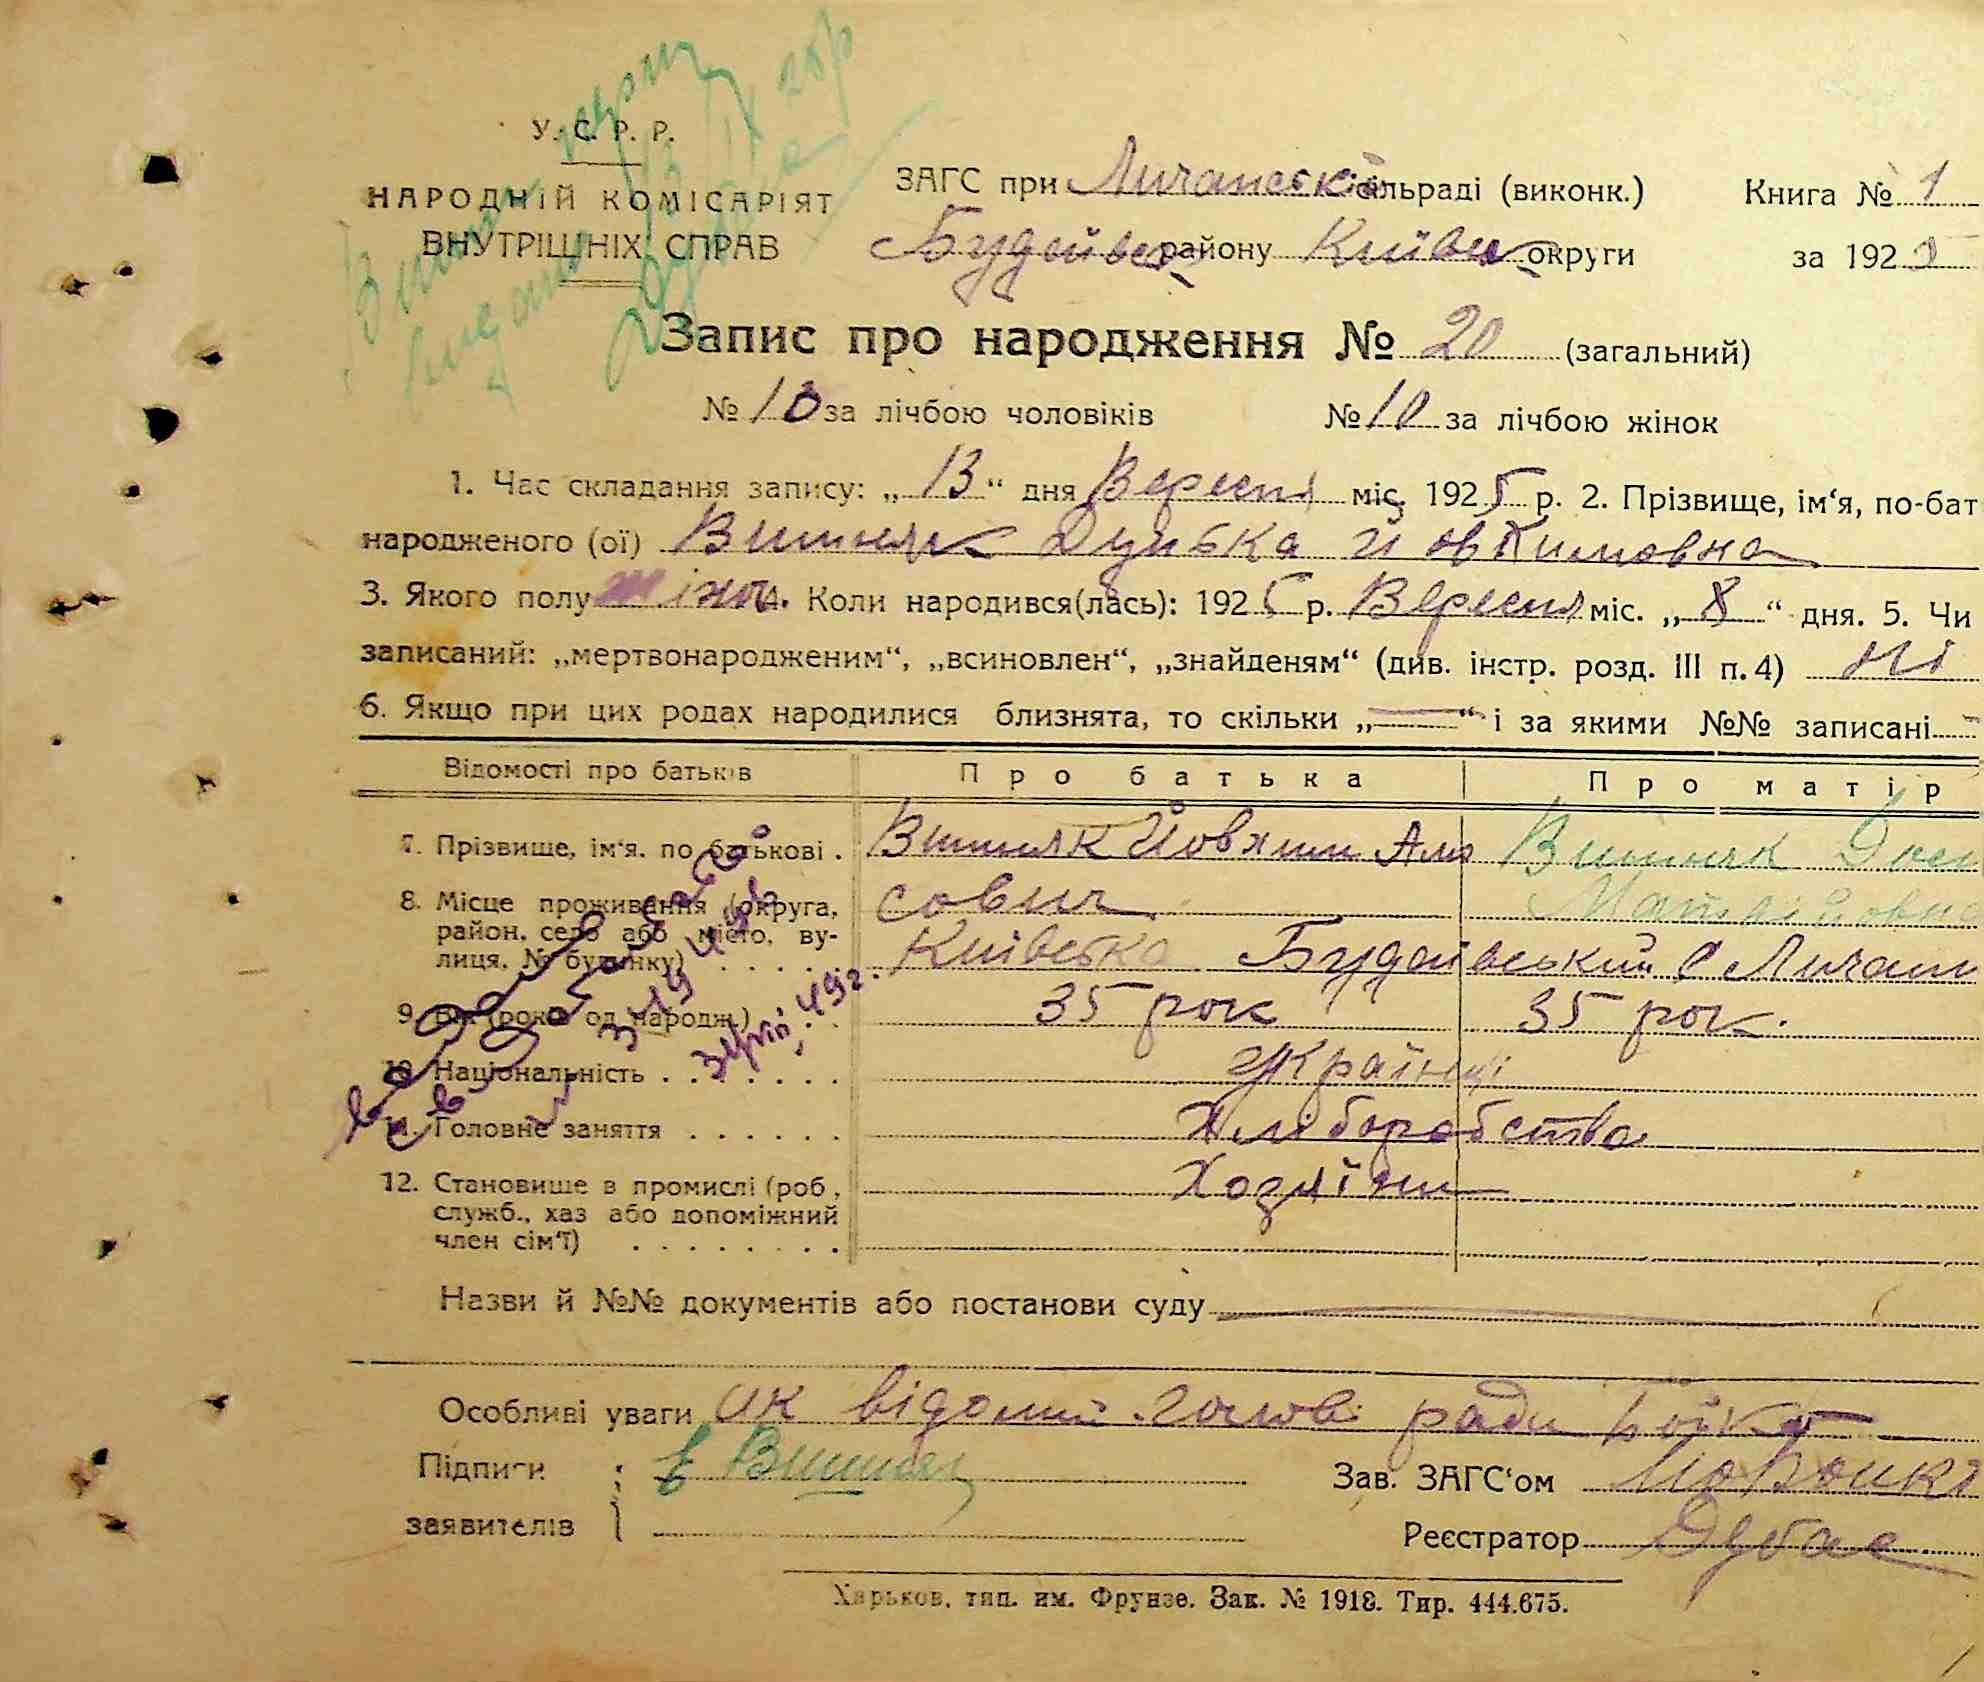 У. С. Р. Р.
НАРОДНІЙ КОМІСАРІЯТ
ВНУТРІШНІХ СПРАВ
ЗАГС при Личанській сільраді (виконк.) Книга № 1
Будаївськ району Київськ округи за 1925
Запис про народження № 20 (загальний)
№ 10 за лічбою чоловіків № 10 за лічбою жінок
1. Час складання запису: „ 13 “ дня Вересня міс. 1925 р. 2. Прізвище, ім‘я, по-бат
народженого (ої) Вишняк Дунька Йовхимовна
3. Якого полу жіноч. Коли народився(лась): 1925 р. Вересня міс. „ 8 “ дня. 5. Чи
записаний: „мертвонародженим“, „всиновлен“, „знайденям“ (див. інстр. розд. III п. 4) ні
6. Якщо при цих родах народилися близнята, то скільки „ — “ і за якими №№ записані —
Відомості про батьків Про батька Про матір
7. Прізвище, ім‘я, по батькові . Вишняк Йовхим Вишняк
8. Місце проживання (округа, сович
район, село або місто, ву-
лиця, № будинку) . . . . . Київська Будаївський С Личани
9. Вік (років од народж.) . . 35 рок 35 рок.
10. Національність . . . . . . . Українці
11. Головне заняття . . . . . . Хліборобство
12. Становище в промислі (роб., Хозяїни
служб., хаз або допоміжний
член сім‘ї) . . . . . . . .
Назви й №№ документів або постанови суду
Особливі уваги як відомий голові ради Бойко
Підписи Вишняк Зав. ЗАГС‘ом
заявителів Реєстратор Дубас
Харьков, тип. им. Фрунзе. Зак. № 1918. Тир. 444.675.